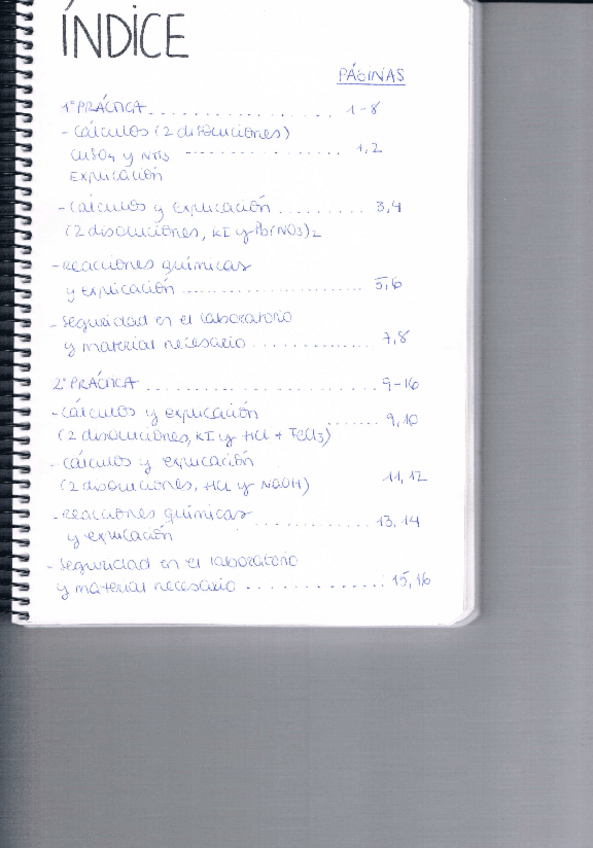 ÍNDICE
PÁGINAS
1ª PRÁCTICA ........................ 1-8
- Cálculos (2 disoluciones)
CuSO4 y NH3 ........................ 1,2
Explicación
- Cálculos y explicación .......... 3,4
(2 disoluciones, KI y Pb(NO3)2
- Reacciones químicas
y explicación ........................ 5,6
- Seguridad en el laboratorio
y material necesario ............... 7,8
2ª PRÁCTICA ........................ 9-16
- Cálculos y explicación ....... 9,10
(2 disoluciones, KI y HCl + FeCl3)
- Cálculos y explicación
(2 disoluciones, HCl y NaOH) 11,12
- Reacciones químicas ............... 13,14
y explicación
- Seguridad en el laboratorio
y material necesario ............... 15,16